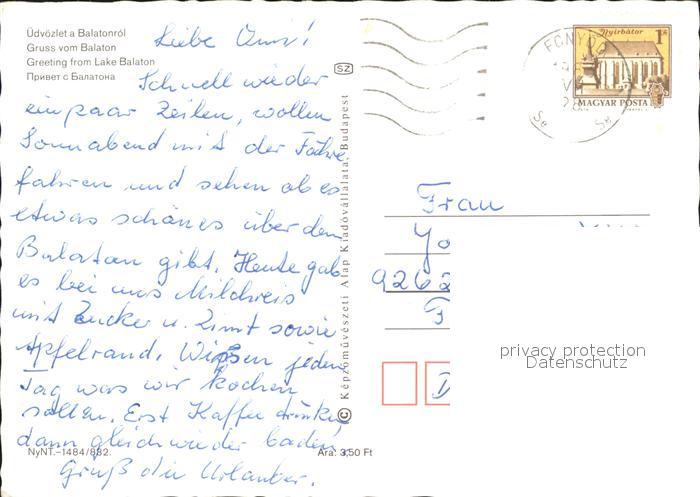 Üdvözlet a Balatonról
Gruss vom Balaton
Greeting from Lake Balaton
Привет с Балатона
Liebe Omi!
Schnell wieder
ein paar Zeilen, wollen
Sonnabend mit der Fähre
fahren und sehen ob es
etwas schönes über den
Balaton gibt. Heute gab
es bei uns Milchreis
mit Zucker u. Zimt sowie
Apfelrand. Wissen jeden
Tag was wir kochen
sollen. Erst Kaffee trinken
dann gleich wieder baden,
Gruß die Urlauber.
NyNT.–1484/882.
Ára: 3,50 Ft
SZ
© Képzőművészeti Alap Kiadóvállalata, Budapest
Nyírbátor
1 Ft
MAGYAR POSTA
FONYÓD
Frau
Yo
9262
F
D
privacy protection
Datenschutz